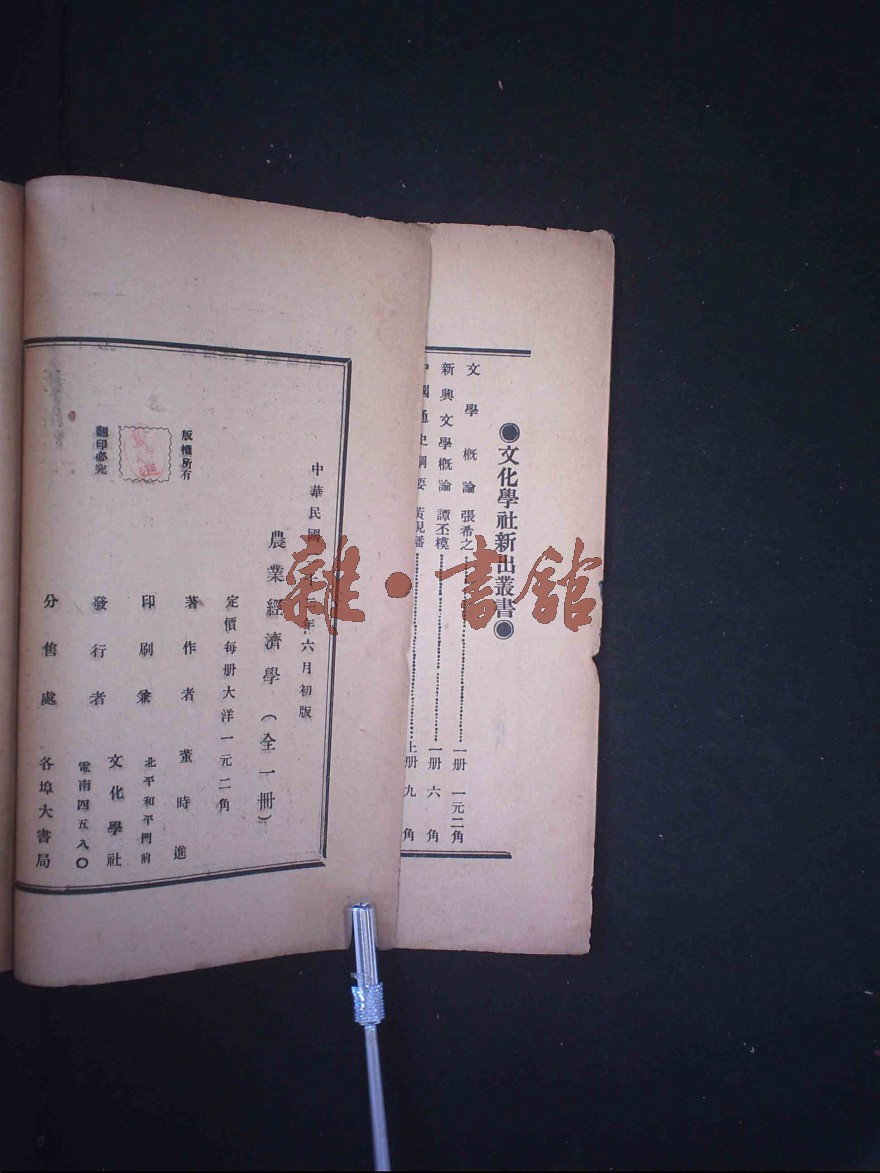 ●文化學社新出叢書●
文學概論 張希之 一册 一元二角
新興文學概論 譚丕模 一册 六角
中國通史綱要 黃現璠 上册 九角
中華民國 年六月初版
農業經濟學(全一冊)
定價每册大洋一元二角
著作者 董時進
印刷兼
發行者
北平和平門前
文化學社
電南四五八〇
分售處 各埠大書局
版權所有
翻印必究
雜·書館